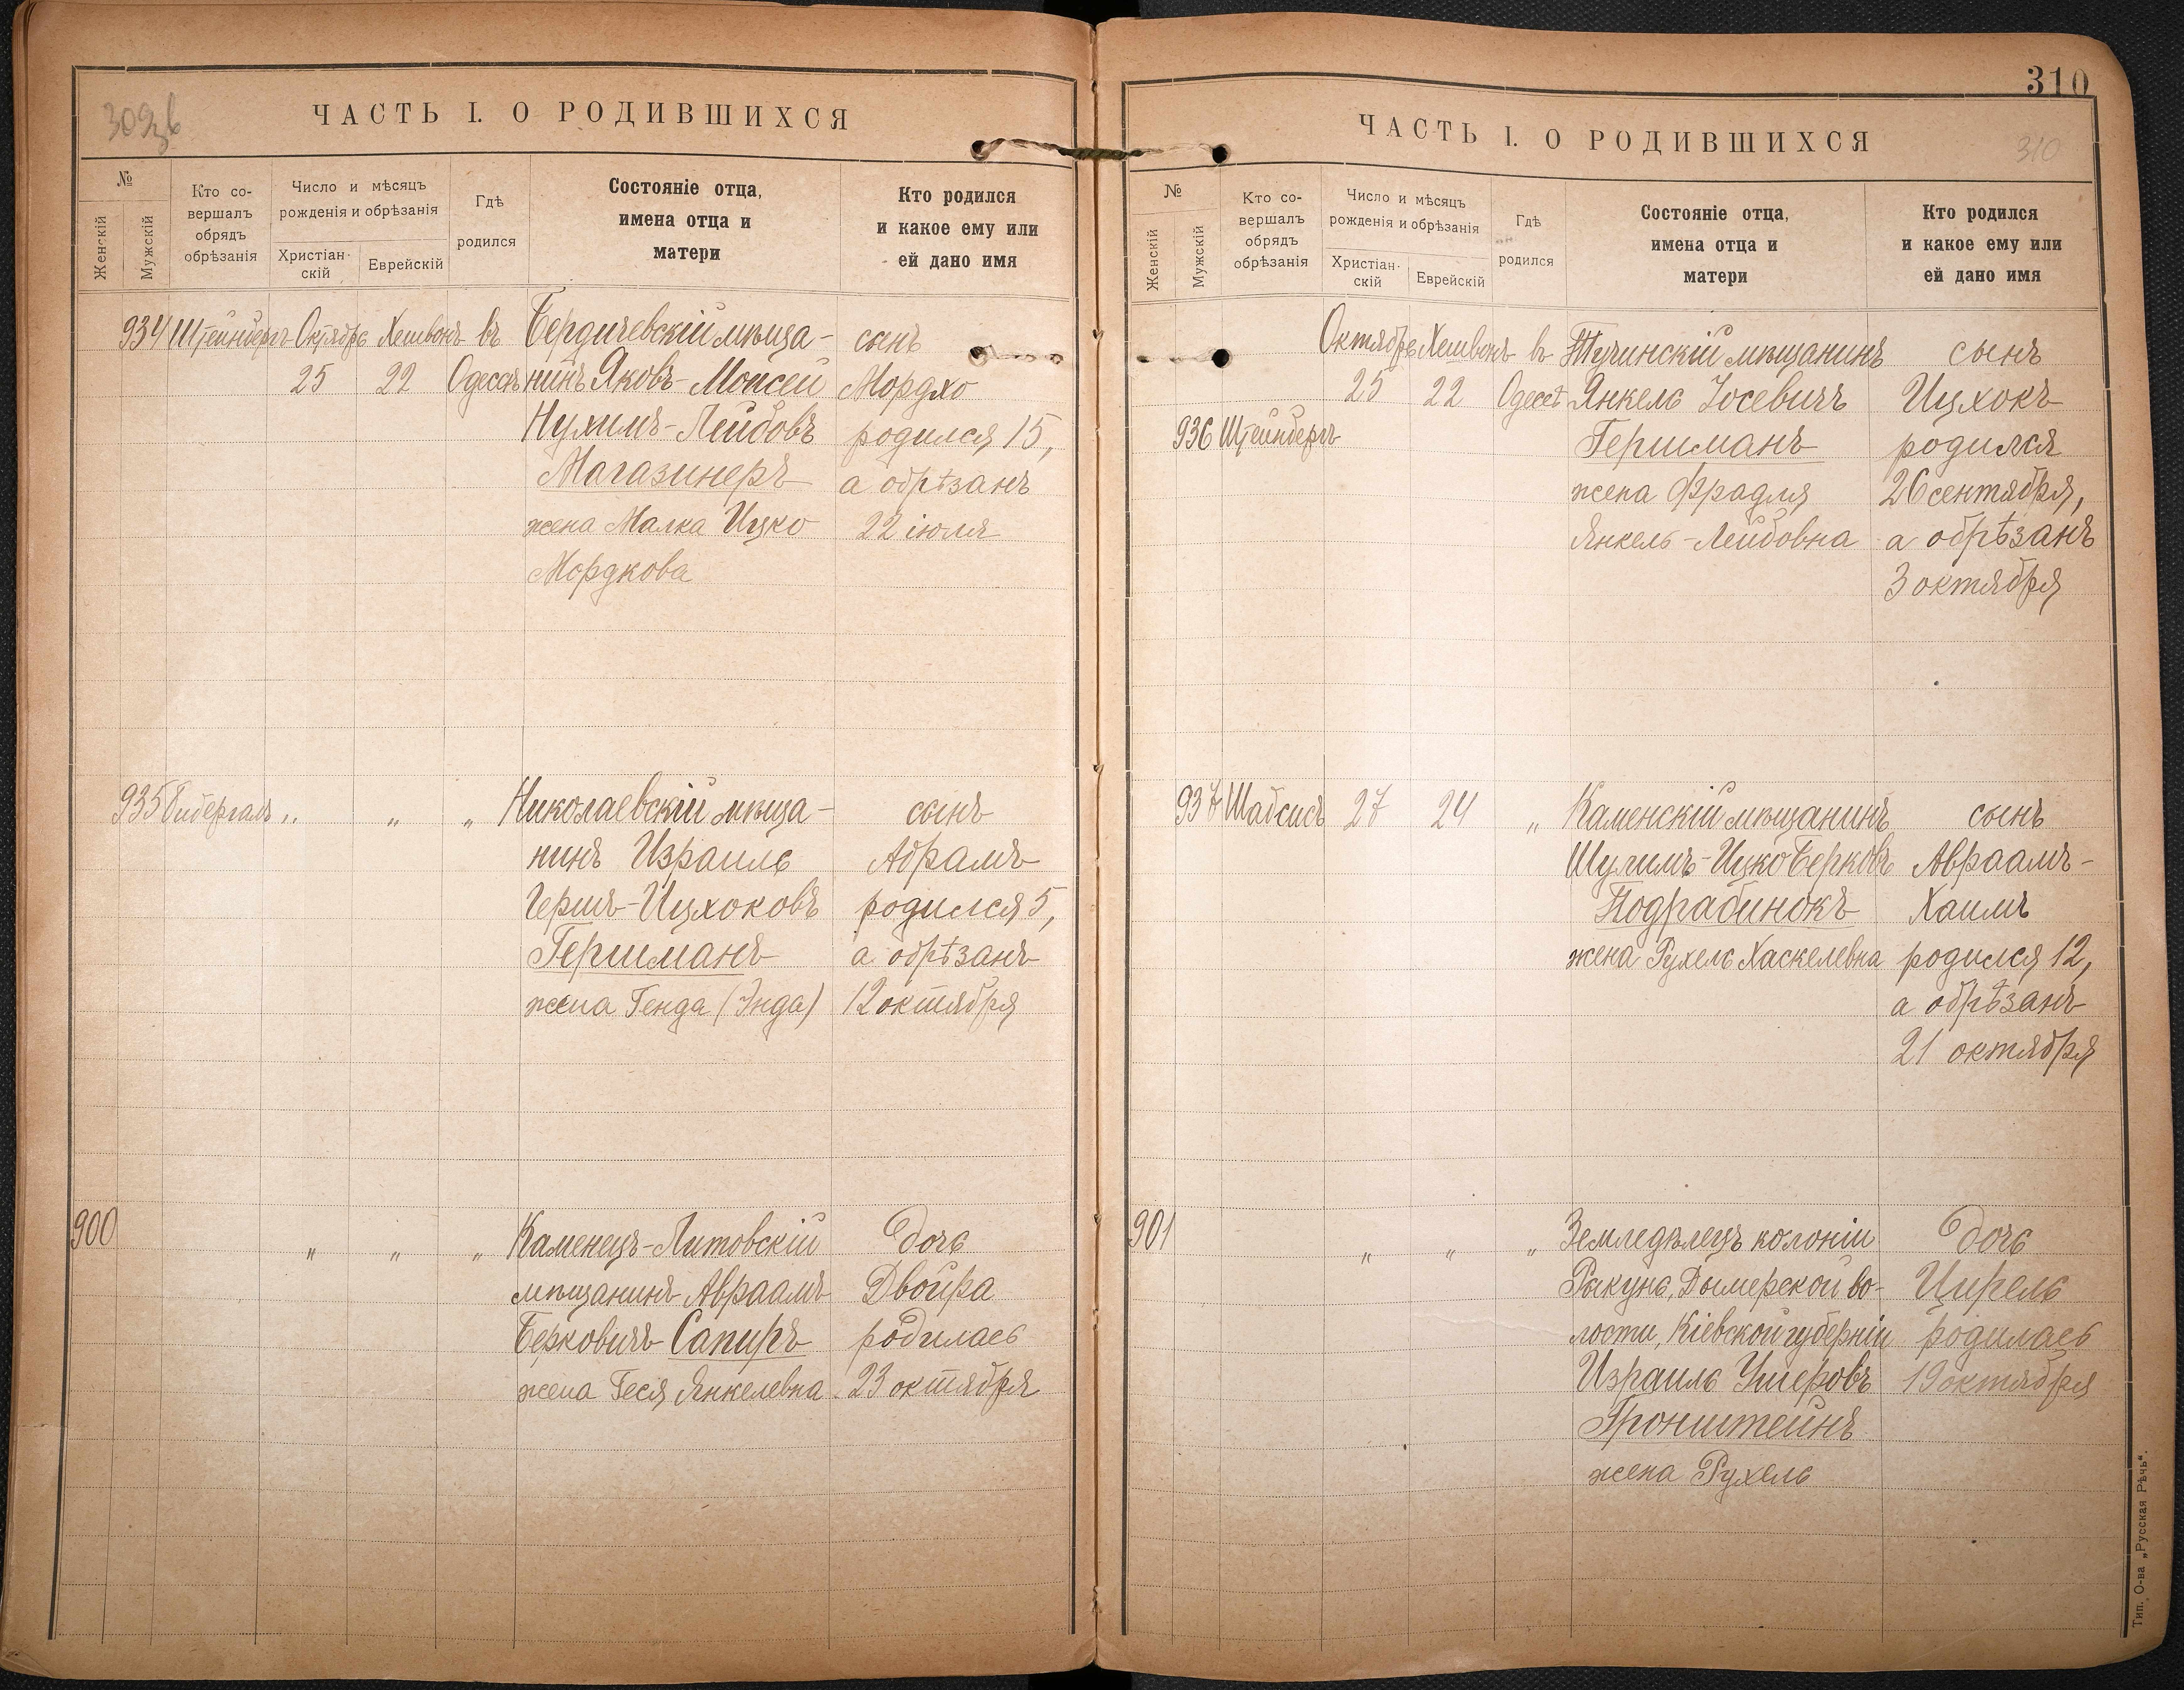 309 зв
ЧАСТЬ I. О РОДИВШИХСЯ
№
Женскій
Мужскій
Кто со-
вершалъ
обрядъ
обрѣзанія
Число и мѣсяцъ
рожденія и обрѣзанія
Христіан-
скій
Еврейскій
Гдѣ
родился
Состояніе отца,
имена отца и
матери
Кто родился
и какое ему или
ей дано имя
934 Штейнбергъ Октябрь Хешвонъ въ Бердичевскій мѣща- сынъ
25 22 Одессѣ нинъ Яковъ-Мойсей Мордхо
Нухимъ-Лейбовъ родился 15,
Магазинеръ а обрѣзанъ
жена Малка Ицко 22 іюля
Мордкова
935 Гибергалъ „ „ „ Николаевскій мѣща- сынъ
нинъ Израиль Абрамъ
Гершъ-Ицхоковъ родился 5,
Гершманъ а обрѣзанъ
жена Генда (Энда) 12 октября
900 „ „ „ Каменецъ-Литовскій дочь
мѣщанинъ Авраамъ Двойра
Берковичъ Сапиръ родилась
жена Геся Янкелевна 23 октября
310
ЧАСТЬ I. О РОДИВШИХСЯ
310
№
Женскій
Мужскій
Кто со-
вершалъ
обрядъ
обрѣзанія
Число и мѣсяцъ
рожденія и обрѣзанія
Христіан-
скій
Еврейскій
Гдѣ
родился
Состояніе отца,
имена отца и
матери
Кто родился
и какое ему или
ей дано имя
Октябрь Хешвонъ въ Тучинскій мѣщанинъ сынъ
25 22 Одессѣ Янкель Іосевичъ Ицхокъ
936 Штейнбергъ Гершманъ родился
жена Фрадля 26 сентября,
Янкель-Лейбовна а обрѣзанъ
3 октября
937 Шабсисъ 27 24 „ Каменскій мѣщанинъ сынъ
Шулимъ-Ицко Берковъ Авраамъ-
Подрабинокъ Хаимъ
жена Рухель Хаскелевна родился 12,
а обрѣзанъ
21 октября
901 „ „ „ Земледѣлецъ колоніи дочь
Рыкунь, Дымерской во- Цирель
лости, Кіевской губерніи родилась
Израиль Ушеровъ 19 октября
Бронштейнъ
жена Рухель
Тип. О-ва „Русская Рѣчь“.